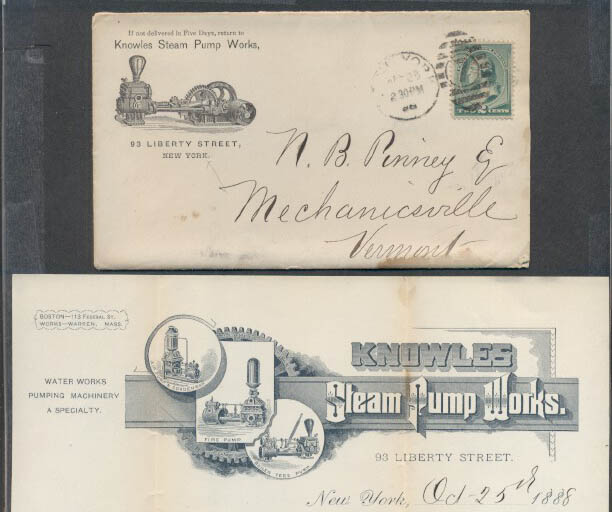 If not delivered in Five Days, return to
Knowles Steam Pump Works,
93 LIBERTY STREET,
NEW YORK.
YORK
28
2 30 PM
88
TWO 2 CENTS
N. B. Pinney &
Mechanicsville
Vermont
BOSTON—113 FEDERAL ST.
WORKS—WARREN, MASS.
WATER WORKS
PUMPING MACHINERY
A SPECIALTY.
FIRE PUMP.
KNOWLES
Steam Pump Works.
93 LIBERTY STREET.
New York, Oct 25th 1888